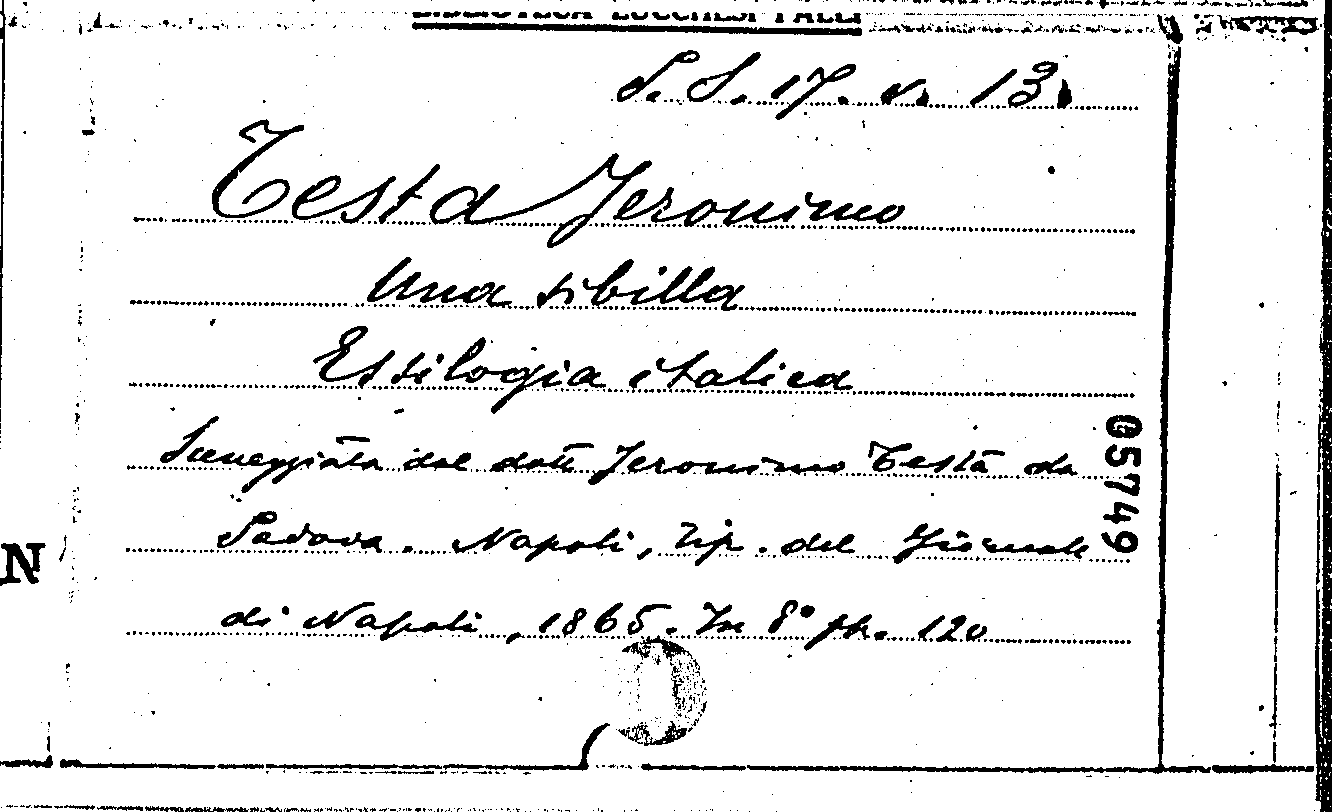 BIBLIOTECA LUCCHESI PALLI
S. S. 17. v. 13.
Testa Jeronimo
Una sibilla
Essilogia italica
Suneggiata dal dott Jeronimo Testa da
Padova. Napoli, Tip. del Giornale
di Napoli, 1865. In 8° ph. 120
05749
N